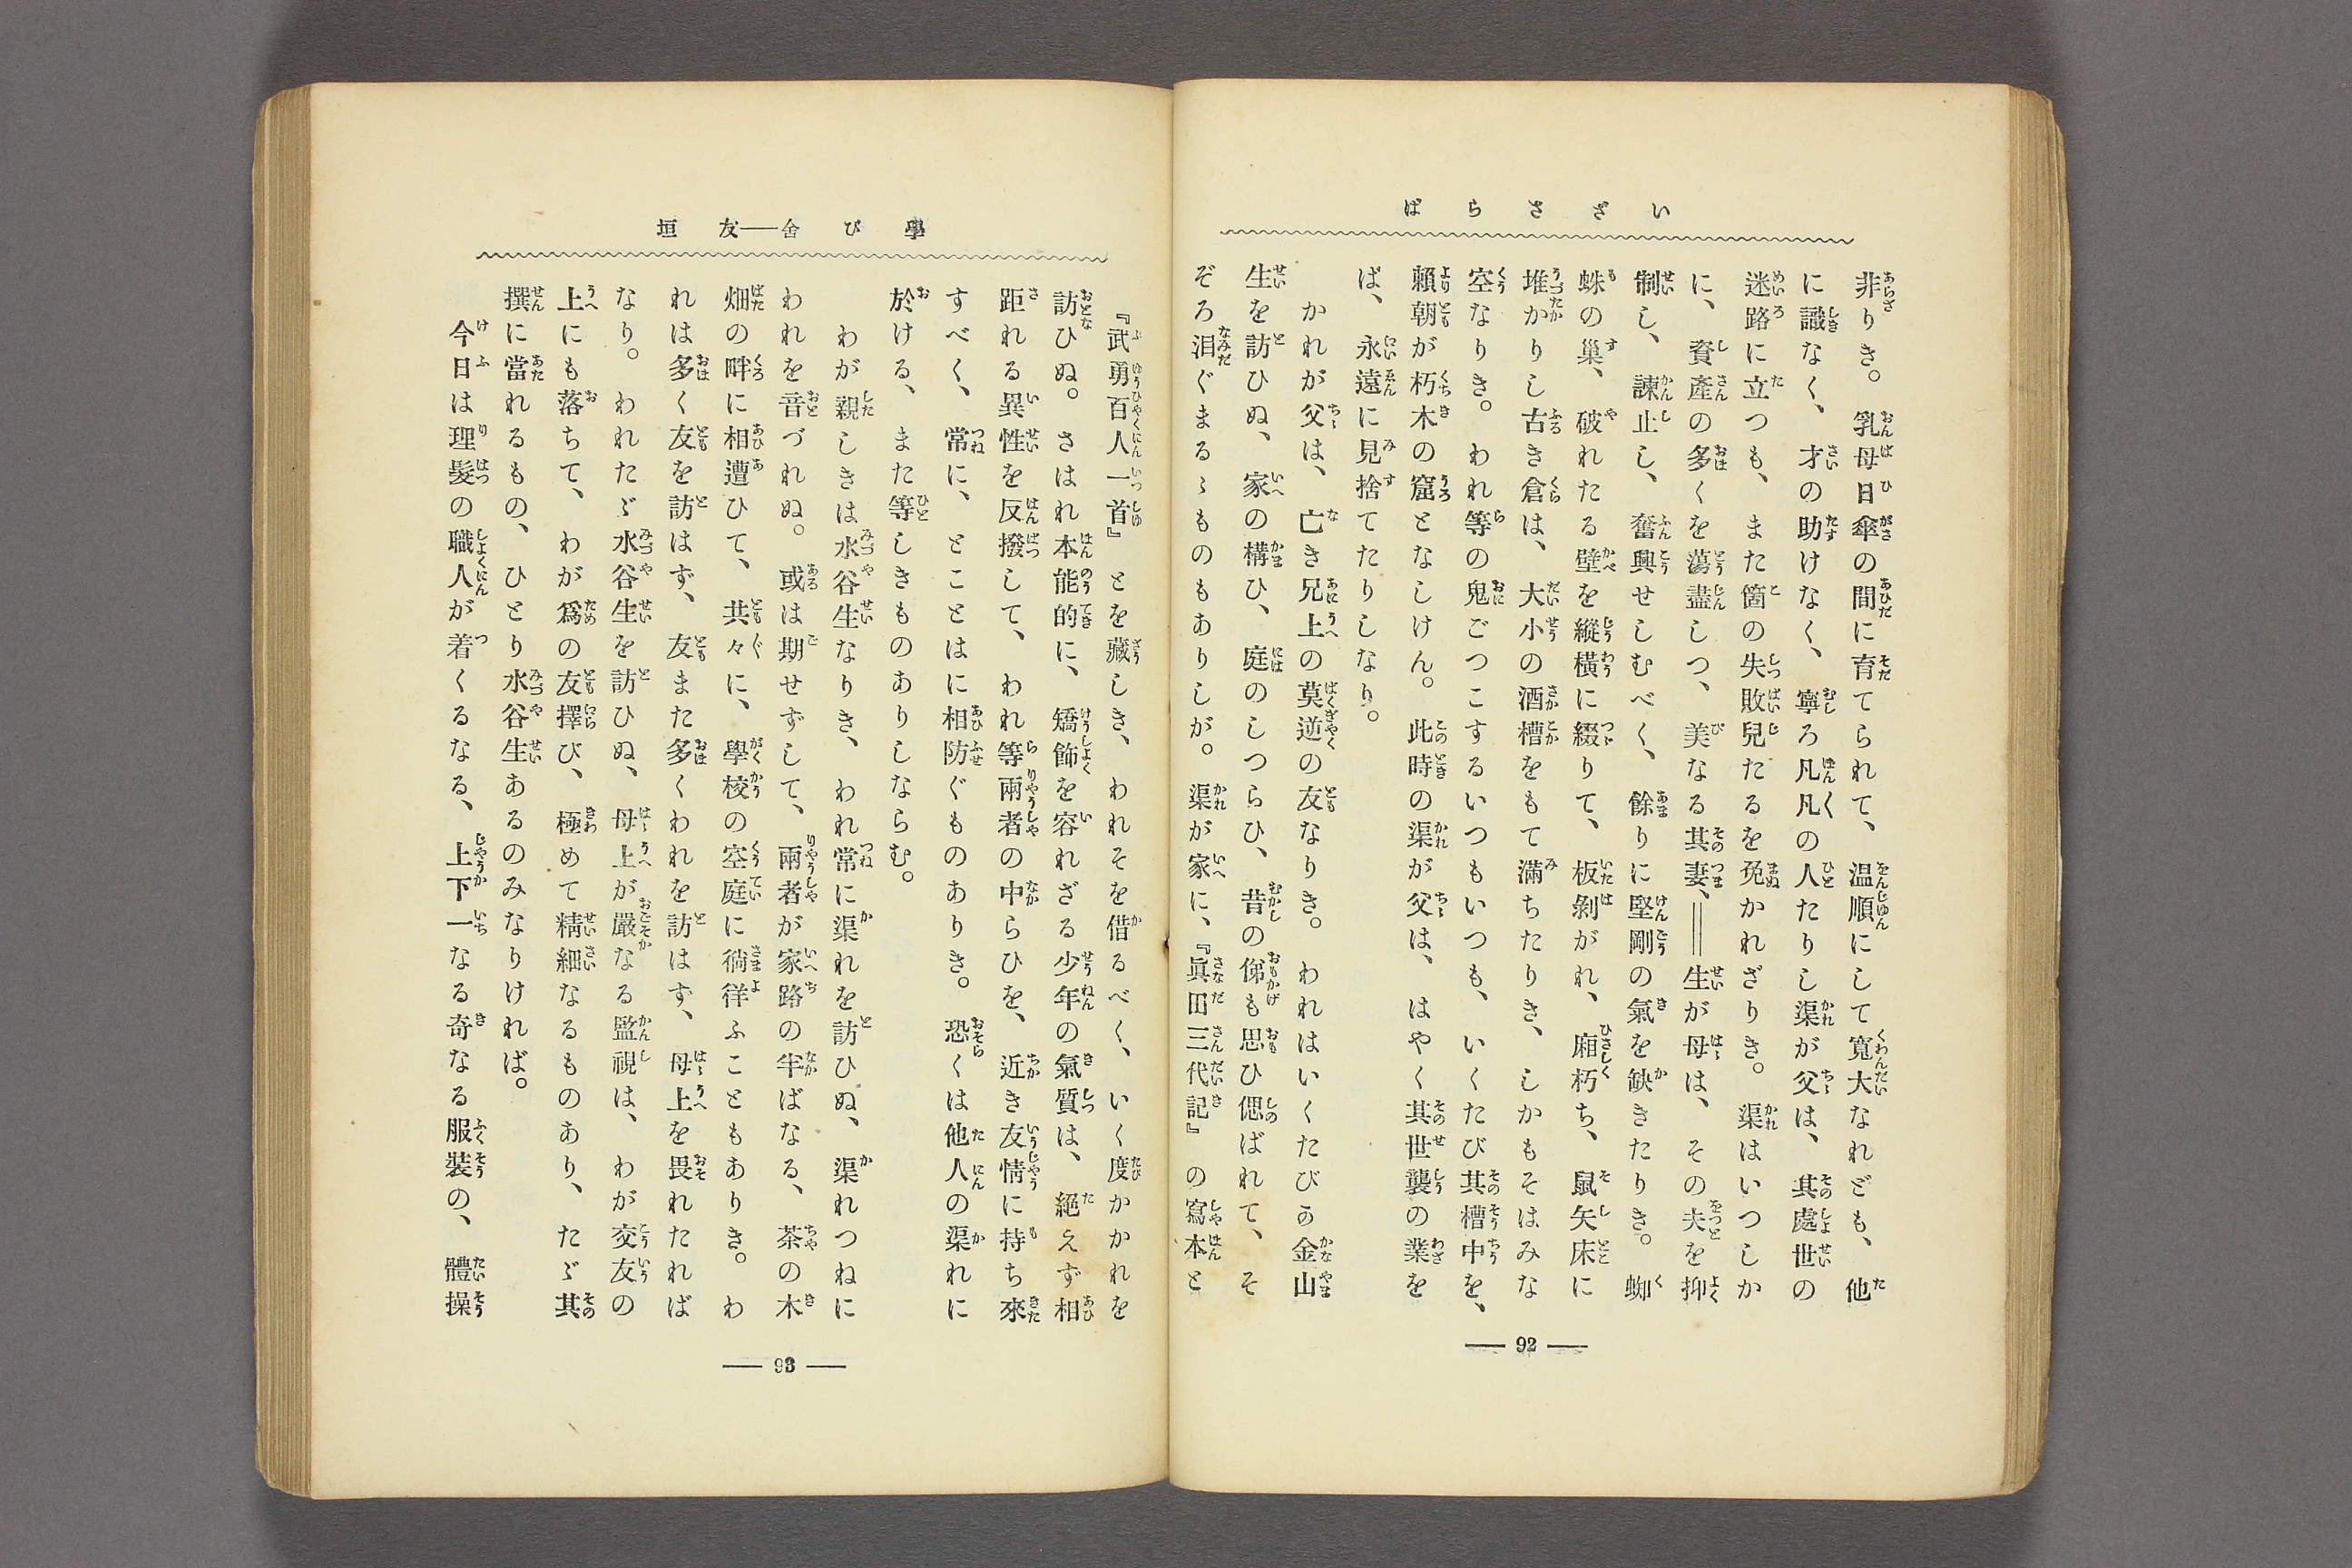 いざさらば
非りき。乳母日傘の間に育てられて、温順にして寛大なれども、他
に識なく、才の助けなく、寧ろ凡凡の人たりし渠が父は、其處世の
迷路に立つも、また箇の失敗兒たるを免かれざりき。渠はいつしか
に、資產の多くを蕩盡しつ、美なる其妻、――生が母は、その夫を抑
制し、諫止し、奮興せしむべく、餘りに堅剛の氣を缺きたりき。蜘
蛛の巢、破れたる壁を縱橫に綴りて、板剝がれ、廂朽ち、鼠矢床に
堆かりし古き倉は、大小の酒槽をもて滿ちたりき、しかもそはみな
空なりき。われ等の鬼ごつこするいつもいつも、いくたび其槽中を、
賴朝が朽木の窟となしけん。此時の渠が父は、はやく其世襲の業を
ば、永遠に見捨てたりしなり。
かれが父は、亡き兄上の莫逆の友なりき。われはいくたびか金山
生を訪ひぬ、家の構ひ、庭のしつらひ、昔の俤も思ひ偲ばれて、そ
ぞろ泪ぐまるゝものもありしが。渠が家に、『眞田三代記』の寫本と
― 92 ―
學び舍――友垣
『武勇百人一首』とを藏しき、われそを借るべく、いく度かかれを
訪ひぬ。さはれ本能的に、矯飾を容れざる少年の氣質は、絕えず相
距れる異性を反撥して、われ等兩者の中らひを、近き友情に持ち來
すべく、常に、とことはに相防ぐものありき。恐くは他人の渠れに
於ける、また等しきものありしならむ。
わが親しきは水谷生なりき、われ常に渠れを訪ひぬ、渠れつねに
われを音づれぬ。或は期せずして、兩者が家路の半ばなる、茶の木
畑の畔に相遭ひて、共々に、學校の空庭に徜徉ふこともありき。わ
れは多く友を訪はず、友また多くわれを訪はず、母上を畏れたれば
なり。われたゞ水谷生を訪ひぬ、母上が嚴なる監視は、わが交友の
上にも落ちて、わが爲の友擇び、極めて精細なるものあり、たゞ其
撰に當れるもの、ひとり水谷生あるのみなりければ。
今日は理髮の職人が着くるなる、上下一なる奇なる服裝の、體操
― 93 ―